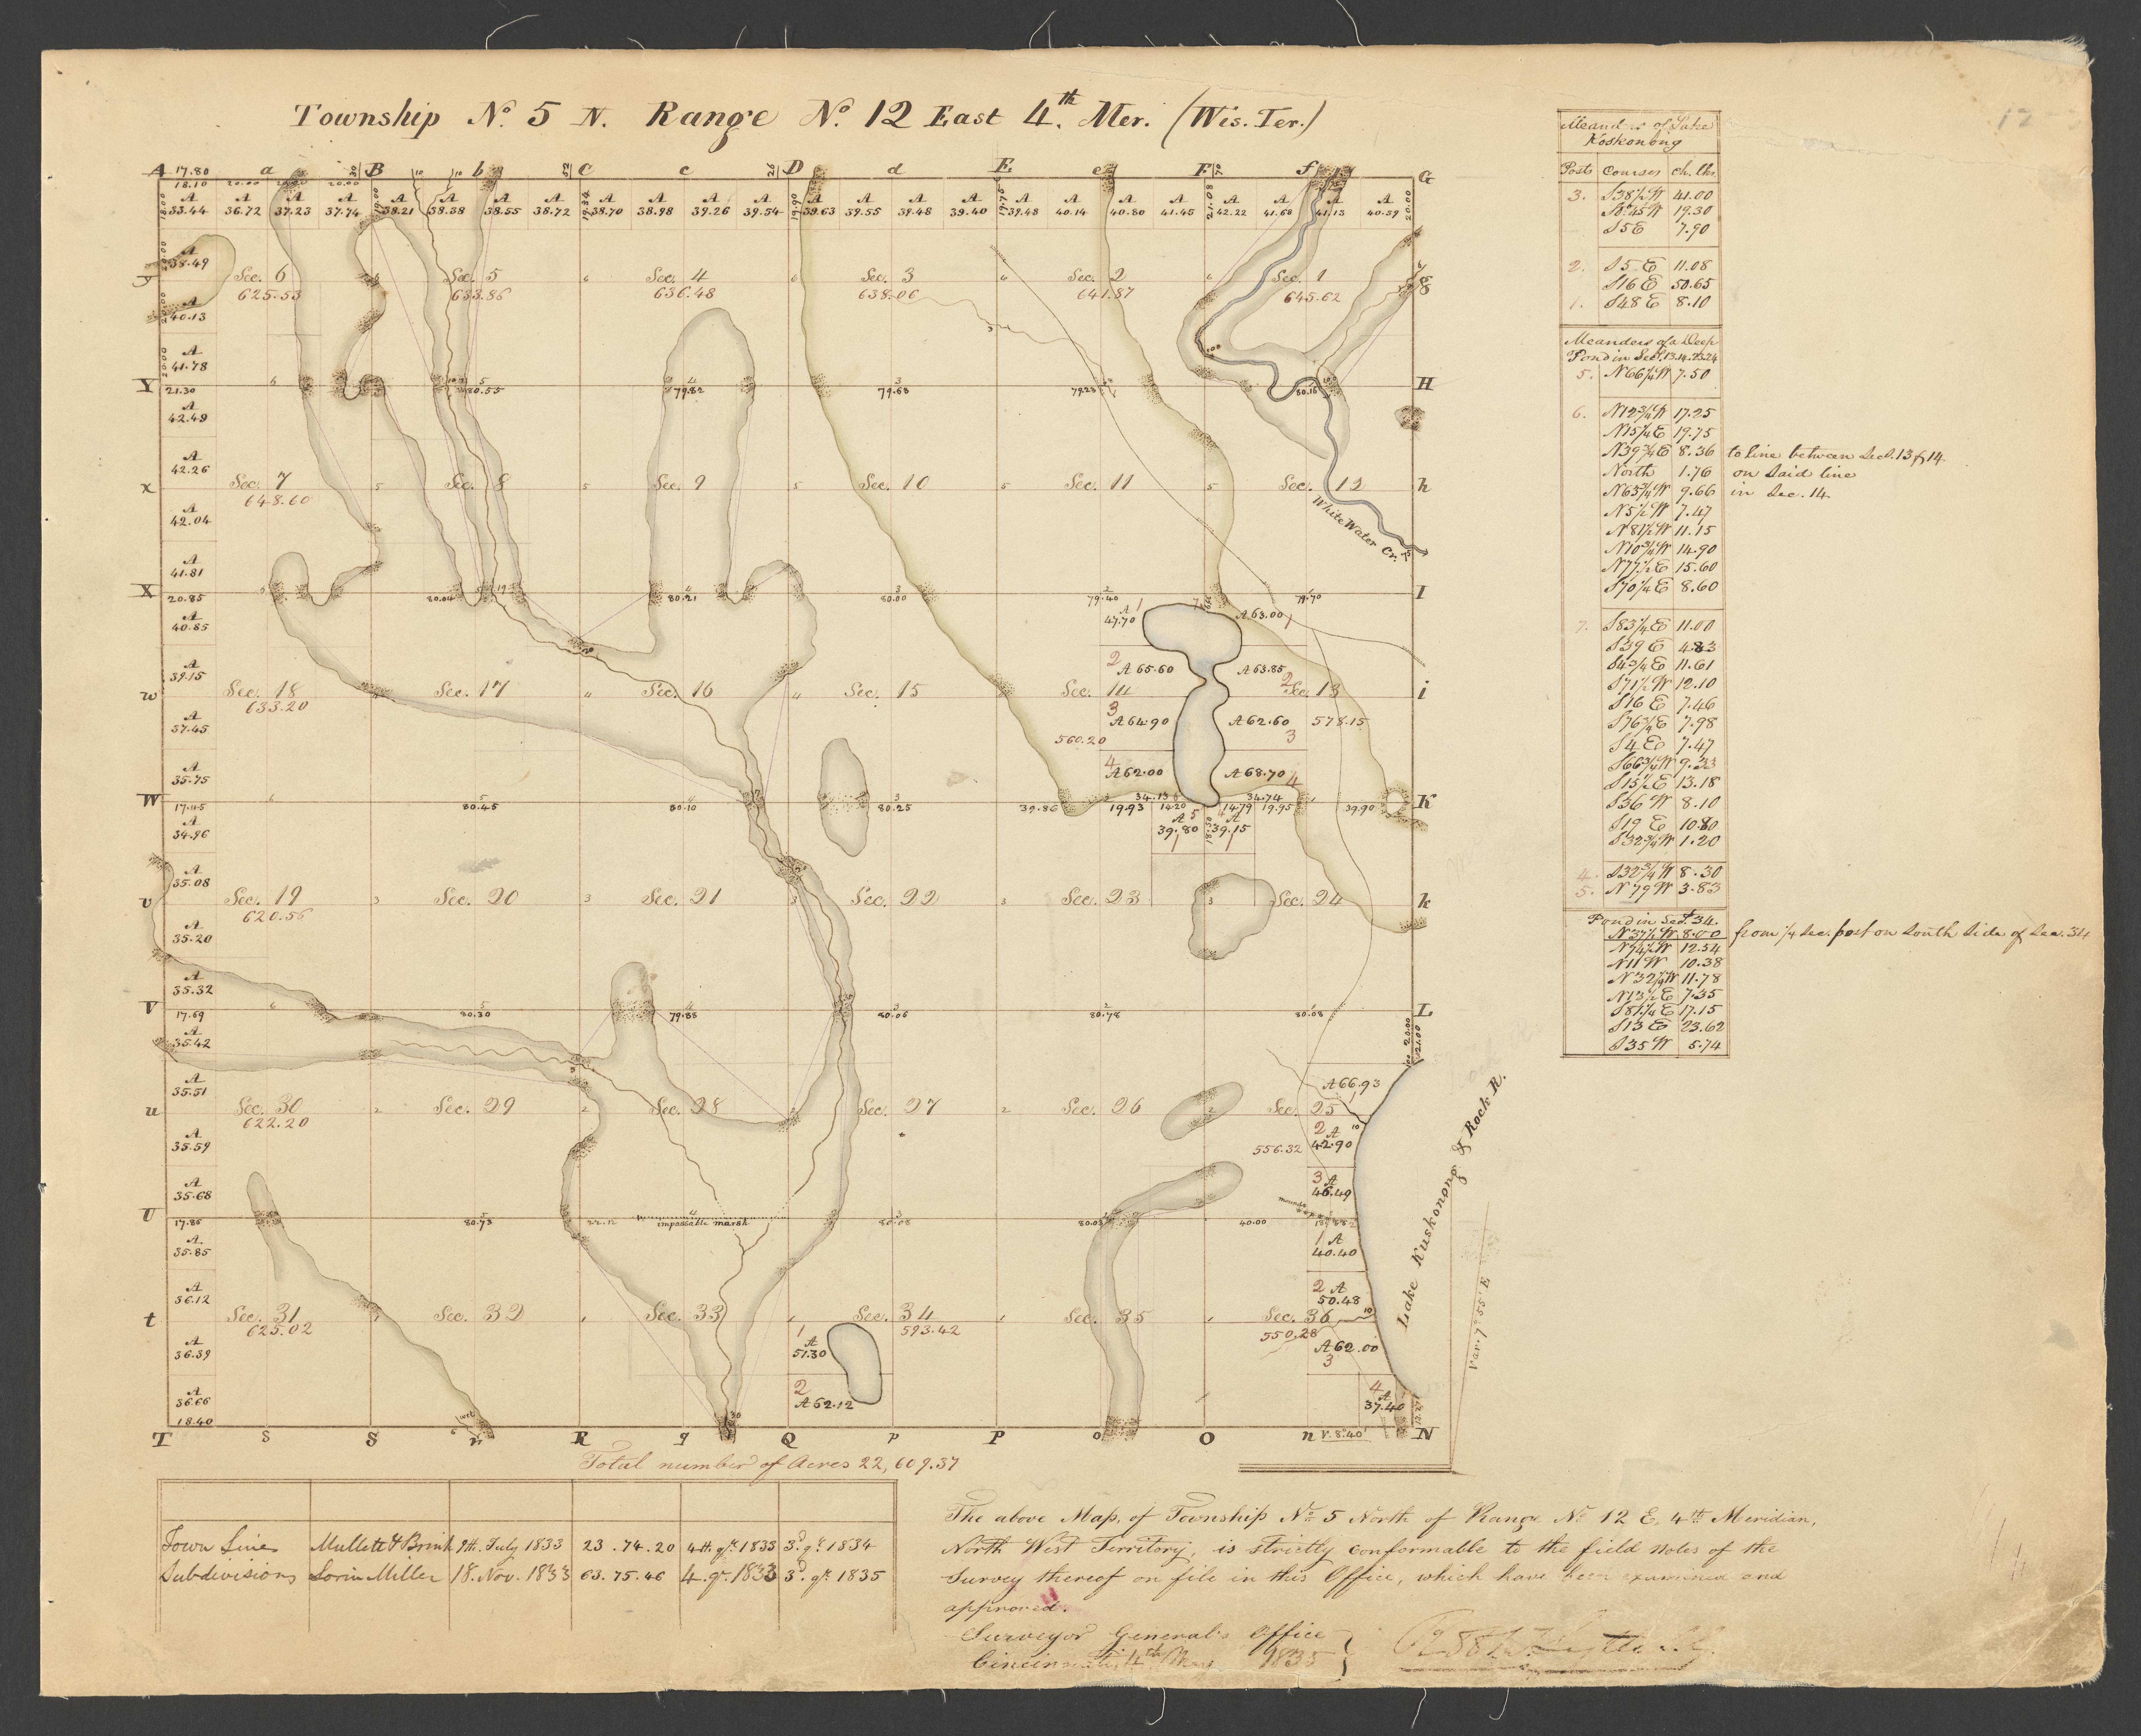 Township No. 5 N. Range No. 12 East 4th. Mer. (Wis. Ter.)
A 17.80 a B b C c D d E e F f G
18.10 20.00 20.00
A A A A A A A A A A A A A A A A A A A A A A A A
33.44 36.72 37.23 37.74 38.21 38.38 38.55 38.72 38.70 38.98 39.26 39.54 39.63 39.55 39.48 39.40 39.48 40.14 40.80 41.45 42.22 41.68 41.13 40.59
A
38.49
g Sec. 6 Sec. 5 Sec. 4 Sec. 3 Sec. 2 Sec. 1 g
625.53 633.86 636.48 638.06 641.87 645.62
A
40.13
A
41.78
Y 21.30 80.55 79.82 79.68 79.23 80.16 H
A
42.49
A
42.26
x Sec. 7 Sec. 8 Sec. 9 Sec. 10 Sec. 11 Sec. 12 h
648.60
White Water Cr.
A
42.04
A
41.81
X 20.85 80.04 80.21 80.00 79.40 79.70 I
A
40.85
1 A 47.70 A 63.00 1
2 A 65.60 A 63.85 2
A
39.15
w Sec. 18 Sec. 17 Sec. 16 Sec. 15 Sec. 14 Sec. 13 i
633.20
3 A 64.90 A 62.60 3 578.15
560.20
A
37.45
4 A 62.00 A 68.70 4
A
35.75
W 17.45 80.45 80.10 80.25 39.86 34.13 34.74 39.90 K
19.93 14.20 14.79 19.95
A
34.96
A 5 A
39.80 39.15
A
35.08
v Sec. 19 Sec. 20 Sec. 21 Sec. 22 Sec. 23 Sec. 24 k
620.56
A
35.20
A
35.32
V 17.69 80.30 79.88 80.06 80.78 80.08 L
A
35.42
A
35.51
A 66.93
1
u Sec. 30 Sec. 29 Sec. 28 Sec. 27 Sec. 26 Sec. 25
622.20
2 A
556.32 42.90
A
35.59
3 A
46.49
A
35.68
mounds
U 17.86 80.73 22.12 impassable marsh 80.08 80.03 40.00
A
35.85
1 A
40.40
A
36.12
2 A
50.48
t Sec. 31 Sec. 32 Sec. 33 Sec. 34 Sec. 35 Sec. 36
625.02 593.42 550.28
1 A
51.30
A 62.00
3
A
36.39
2
A 62.12
4 A
37.40
A
36.66
18.40
T s S R q Q p P o O n V. 8°.40' N
Lake Kuskonong & Rock R.
Var. 7° 55' E
Total number of Acres 22,609.37
Town Lines Mullett & Brink 9th. July 1833 23.74.20 4th qr. 1833 3d. qr. 1834
Subdivisions Lorin Miller 18. Nov. 1833 63.75.46 4. qr. 1833 3d. qr. 1835
The above Map of Township No. 5 North of Range No. 12 E. 4th Meridian,
North West Territory, is strictly conformable to the field notes of the
Survey thereof on file in this Office, which have been examined and
approved.
Surveyor General's Office
Cincinnati, 4th 1835
Meanders of Lake
Koskonong
Posts Courses ch. lks.
3. S38½W 41.00
S.45W 19.30
S5E 7.90
2. S5E 11.08
S16E 50.65
1. S48E 8.10
Meanders of a Deep
Pond in Sec. 13.14.23.24
5. N66¼W 7.50
6. N12¾W 17.25
N15¼E 19.75
N39¾E 8.36 to line between Sec. 13 & 14
North 1.76 on said line
N63¾W 9.66 in Sec. 14.
N5½W 7.47
N81½W 11.15
N10¾W 14.90
N77½E 15.60
S70¼E 8.60
7. S83¼E 11.00
S39E 4.83
S43¼E 11.61
S71½W 12.10
S16E 7.46
S76¾E 7.98
S4E 7.47
S66¾W 9.33
S15½E 13.18
S36W 8.10
S19E 10.80
S32¾W 1.20
4. S32¾W 8.30
5. N79W 3.83
Pond in Sect. 34.
N37½W 8.00 from ¼ Sec. post on South Side of Sec. 34
N74½W 12.54
N11W 10.38
N32¼W 11.78
N13½E 7.35
S81¼E 17.15
S13E 23.62
S35W 5.74